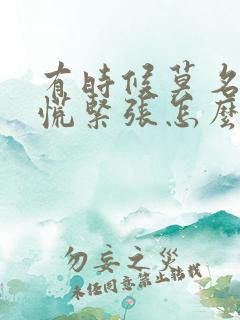 有时候莫名
慌緊張怎麼
勿妄之災
未经同意禁止转载